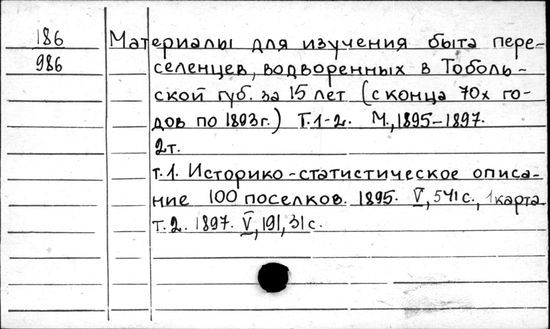 186
986
Материалы для изучения быта пере-
селенцев, водворенных в Тоболь-
ской губ. за 15 лет (с конца 70х го-
дов по 1893г.) Т.1-2. М., 1895-1897.
2т.
т.1. Историко-статистическое описа-
ние 100 поселков. 1895. V, 541с., 1 карта
т.2. 1897. V, 191, 31с.